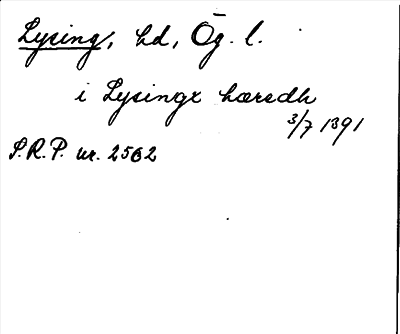 Lysing, hd, Ög. l.
i Lysingx hærædh
3/7 1391
S.R.P. nr. 2562